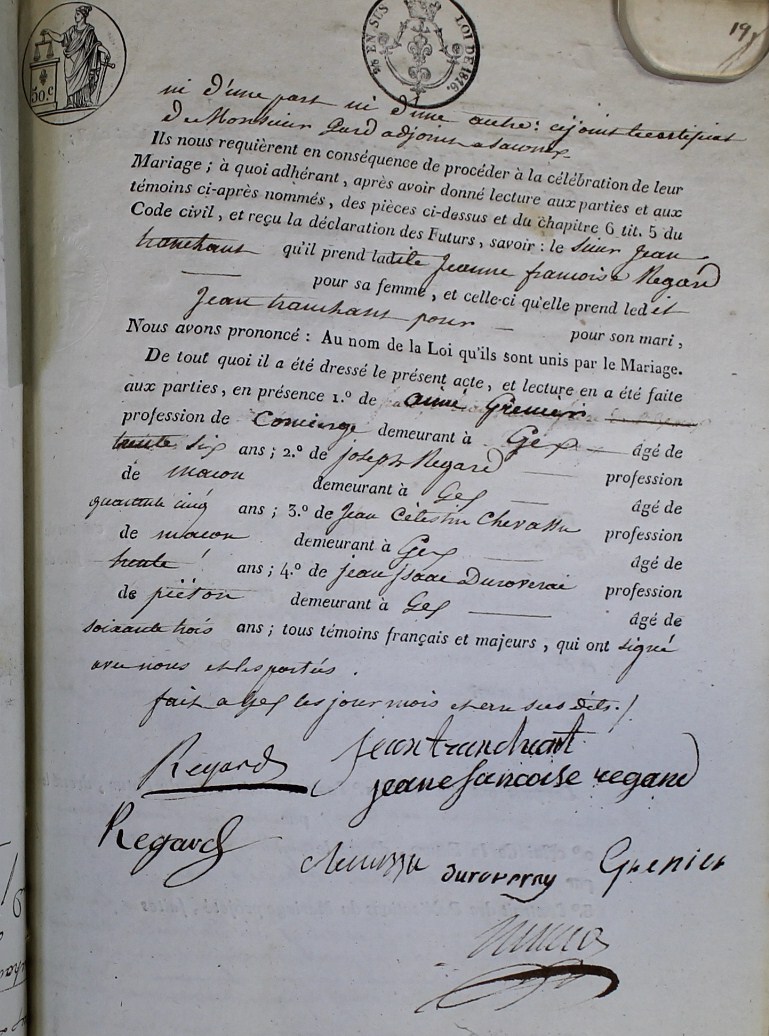 19
50.c
EN SUS LOI DE 1816.
ni d'une part ni d'une autre: cijoint le certifiat
de Monsieur Gard adjoint a
Ils nous requièrent en conséquence de procéder à la célébration de leur
Mariage; à quoi adhérant, après avoir donné lecture aux parties et aux
témoins ci-après nommés, des pièces ci-dessus et du chapitre 6 tit. 5 du
Code civil, et reçu la déclaration des Futurs, savoir: le sieur Jean
tranchant qu'il prend ladite Jeanne francoise Regard
pour sa femme, et celle-ci qu'elle prend ledit
Jean tranchant pour — pour son mari,
Nous avons prononcé: Au nom de la Loi qu'ils sont unis par le Mariage.
De tout quoi il a été dressé le présent acte, et lecture en a été faite
aux parties, en présence 1.º de aimé Grenier
profession de Concierge demeurant à Gex — âgé de
trente six ans; 2.º de joseph Regard — profession
de macon demeurant à Gex — âgé de
quarante cinq ans; 3.º de Jean Célestin Chevassu profession
de macon demeurant à Gex — âgé de
trente ans; 4.º de jean Isaac Duroverai profession
de piéton demeurant à Gex — âgé de
soixante trois ans; tous témoins français et majeurs, qui ont signé
avec nous et les partées.
fait a Gex les jour mois et an sus dits./
Regard jean tranchant
jeane fancoise regard
Regard
duroveray Grenier